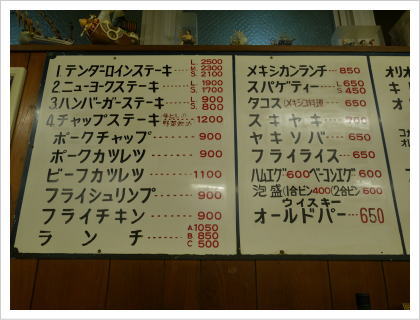 1.テンダーロインステーキ L. 2500 M. 2300 S. 2100
2.ニューヨークステーキ L. 1900 S. 1700
3.ハンバーガーステーキ L. 900 S. 800
4.チャップステーキ 1200
ポークチャップ 900
ポークカツレツ 900
ビーフカツレツ 1100
フライシュリンプ 900
フライチキン 900
ランチ A 1050 B 850 C 500
メキシカンランチ 850
スパゲティー L 650 S 450
タコス (メキシコ料理) 650
スキヤキ 700
ヤキソバ 650
フライライス 650
ハムエグ600 ベーコンエグ600
泡盛(1合ビン400 (2合ビン500
ウイスキー
オールドパー 650